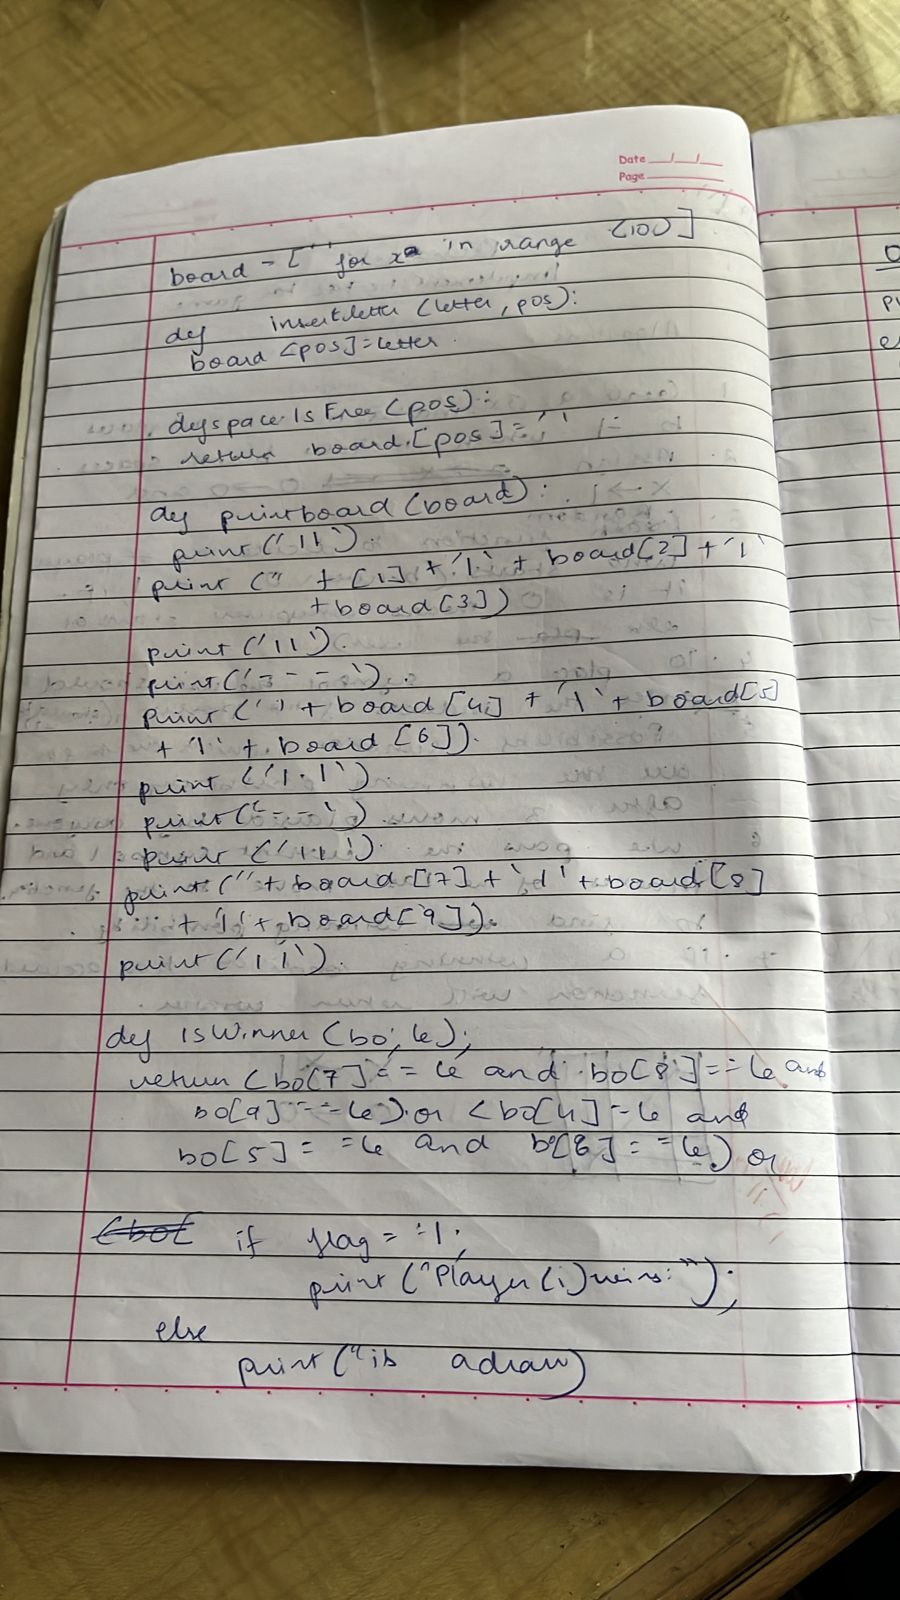 Date __/__/__
Page
board = [' ' for x in range (10)]
def insertletter (letter, pos):
board [pos]=letter
def spaceIsFree (pos):
return board.[pos]=' '
def printboard (board):
print('||').
print ('' + [1] + '|' + board[2] + '|'
+ board [3])
print ('||').
print('---').
print (' ' + board [4] + '|' + board[5]
+ '|' + board [6]).
print ('|.|')
print('--')
print ('||').
print (''+board [7] + '|' + board [8]
+ '|' + board[9]).
print('||').
def isWinner (bo, le);
return (bo[7]==le and bo[8]==le and
bo[9]==le) or (bo[4]=le and
bo[5]==le and bo[8]==le) or
(bo[ if flag ==1;
print ("Player (i) wins:");
else
print ("is a draw)